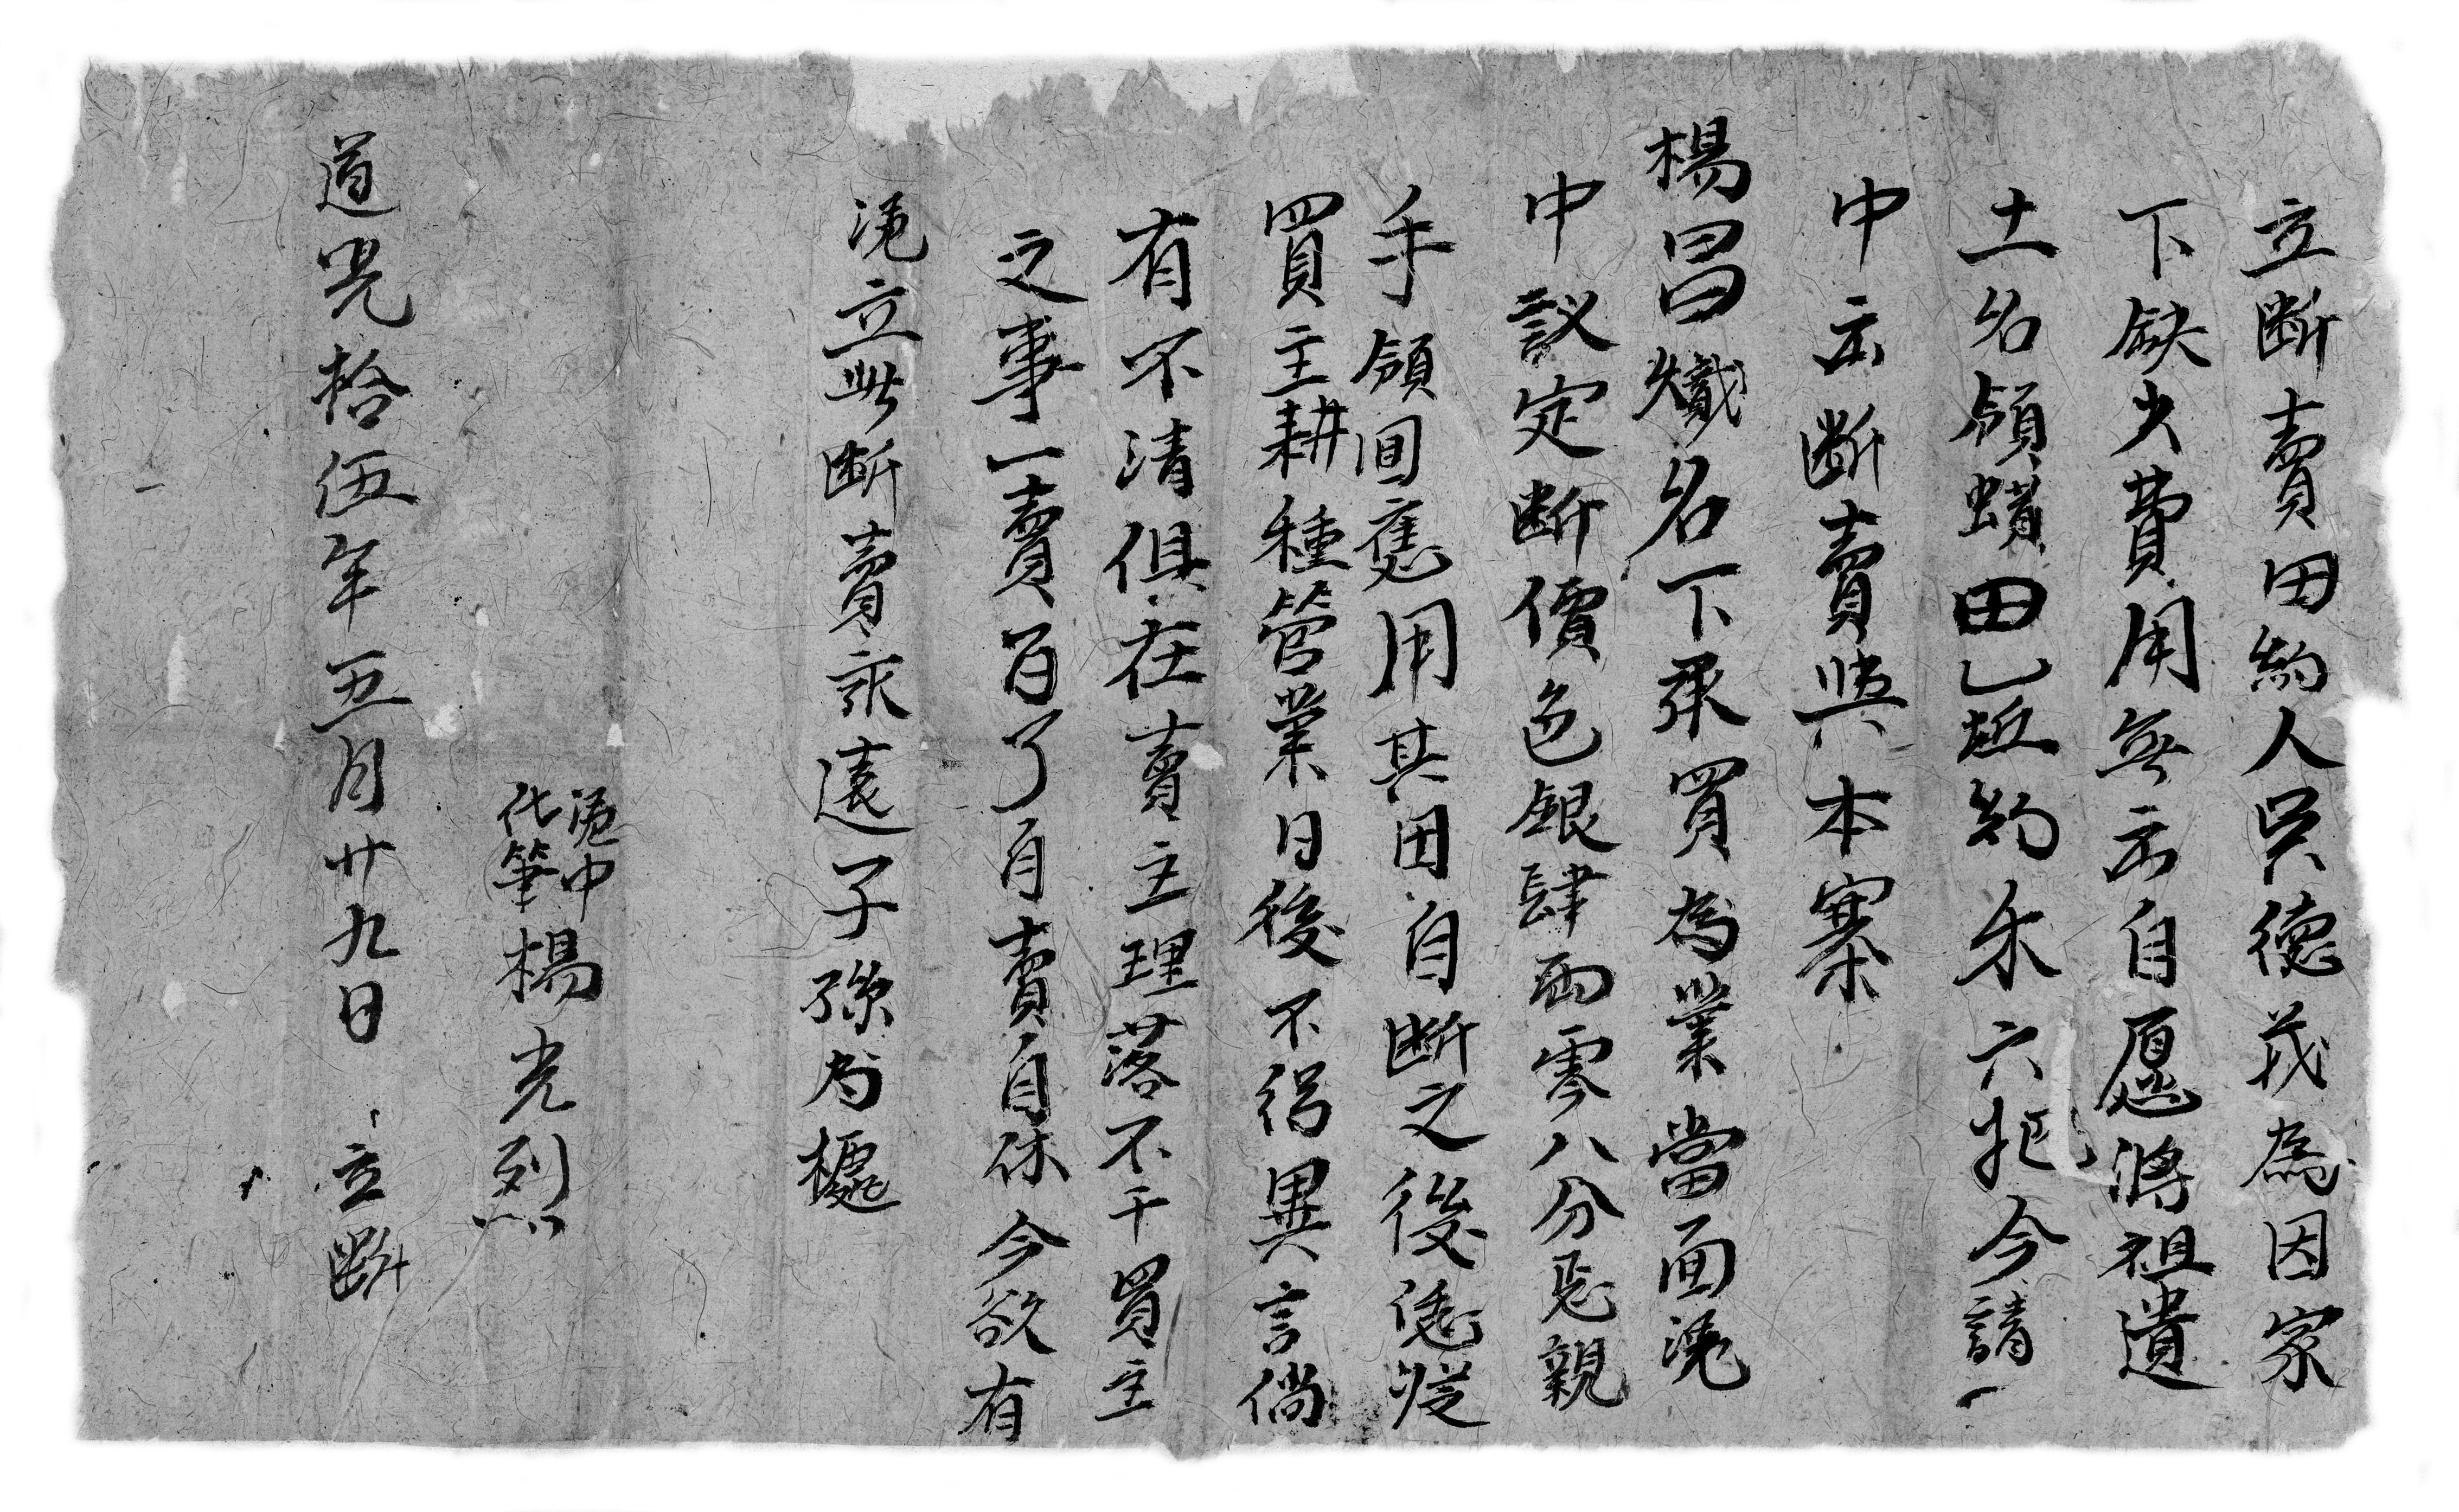 立断賣田約人吳德茂為因家
下缺少費用無出自愿將祖遺
土名領蟻田乚坵約禾六把今請
中出断賣與本寨
楊昌熾名下承買為業當面凴
中議定断價色銀肆両零八分是親
手領回應用其田自断之後凴從
買主耕種管業日後不得異言倘
有不清俱在賣主理落不干買主
之事一賣百了自賣自休今欲有
凴立此断賣永遠子孫為㯫
凴中
代筆 楊光烈
道光拾伍年五月廿九日 立断